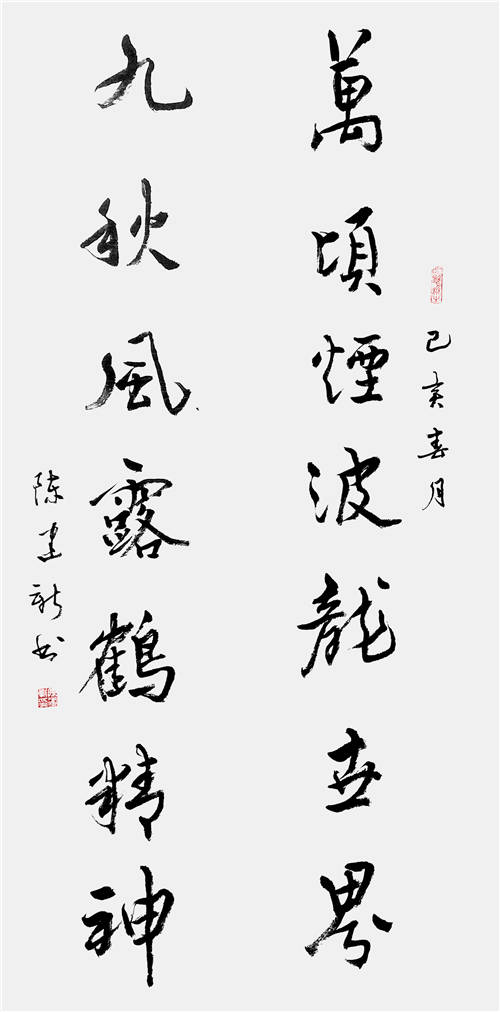 己亥春月
萬頃煙波龍世界
九秋風露鶴精神
陳建新书